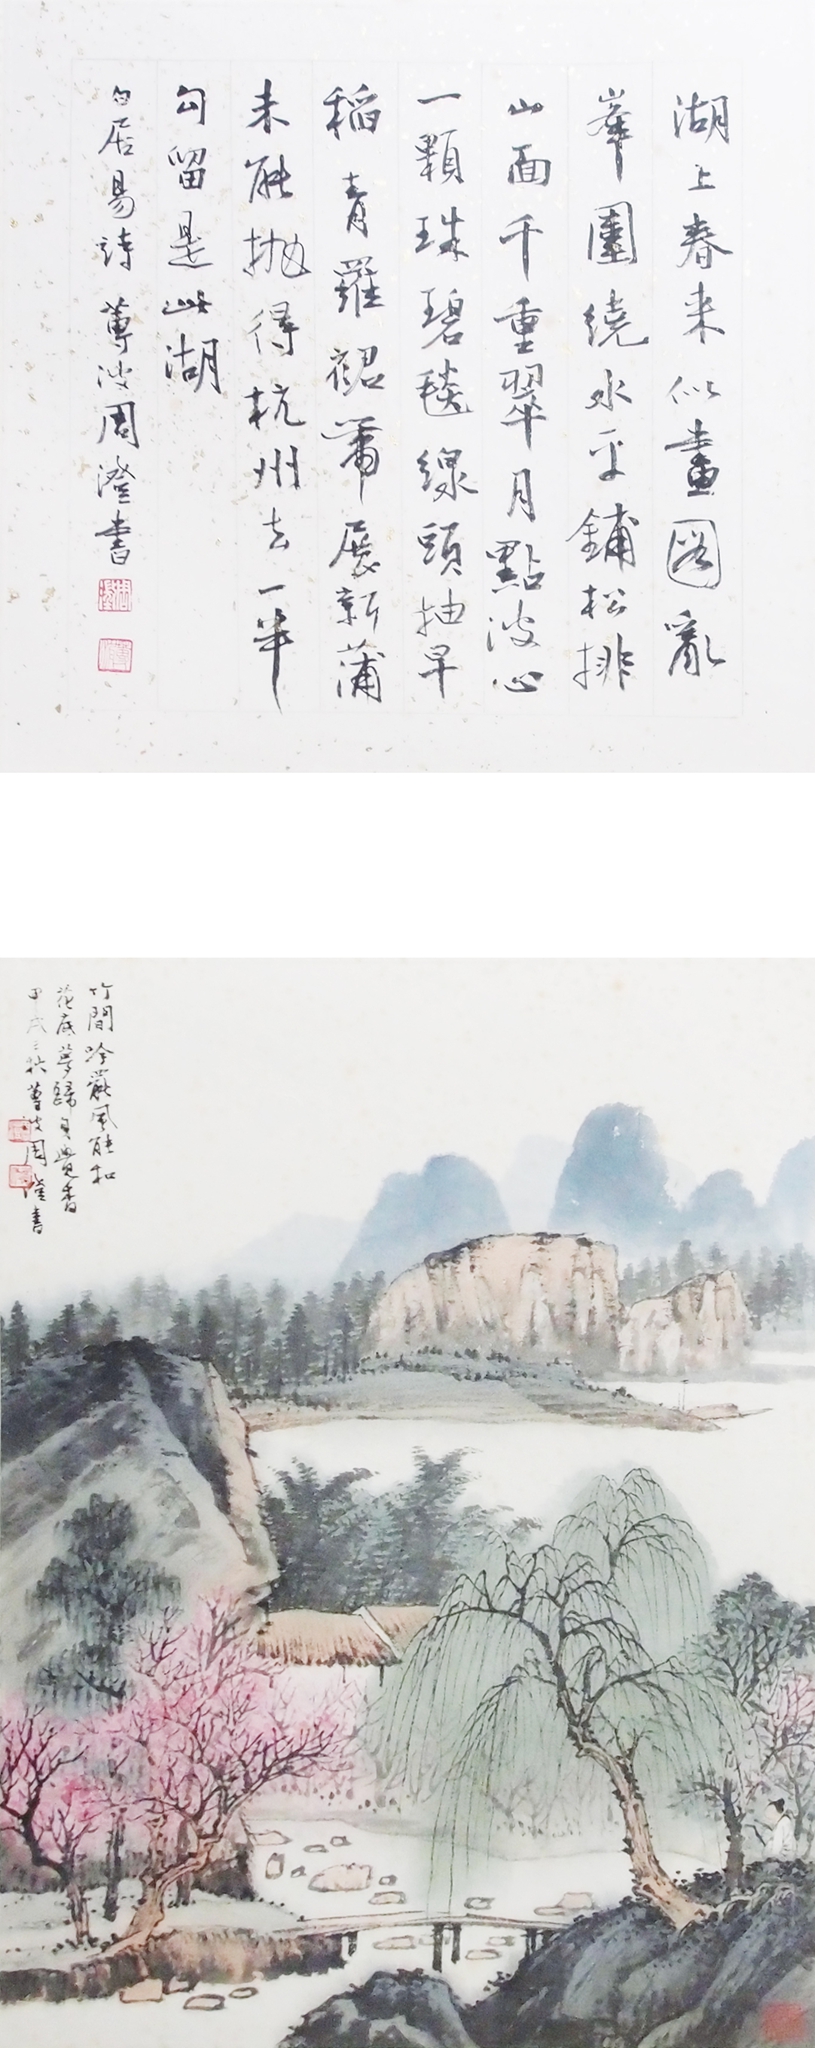 湖上春来似畫圖亂
峯圍繞水平鋪松排
山面千重翠月點波心
一顆珠碧毯線頭抽早
稻青羅裙帶展新蒲
未能抛得杭州去一半
勾留是此湖
白居易詩 蓴波周澄書
竹間吟罷風能和
花底夢歸身覺香
甲戌之秋蓴波周澄書